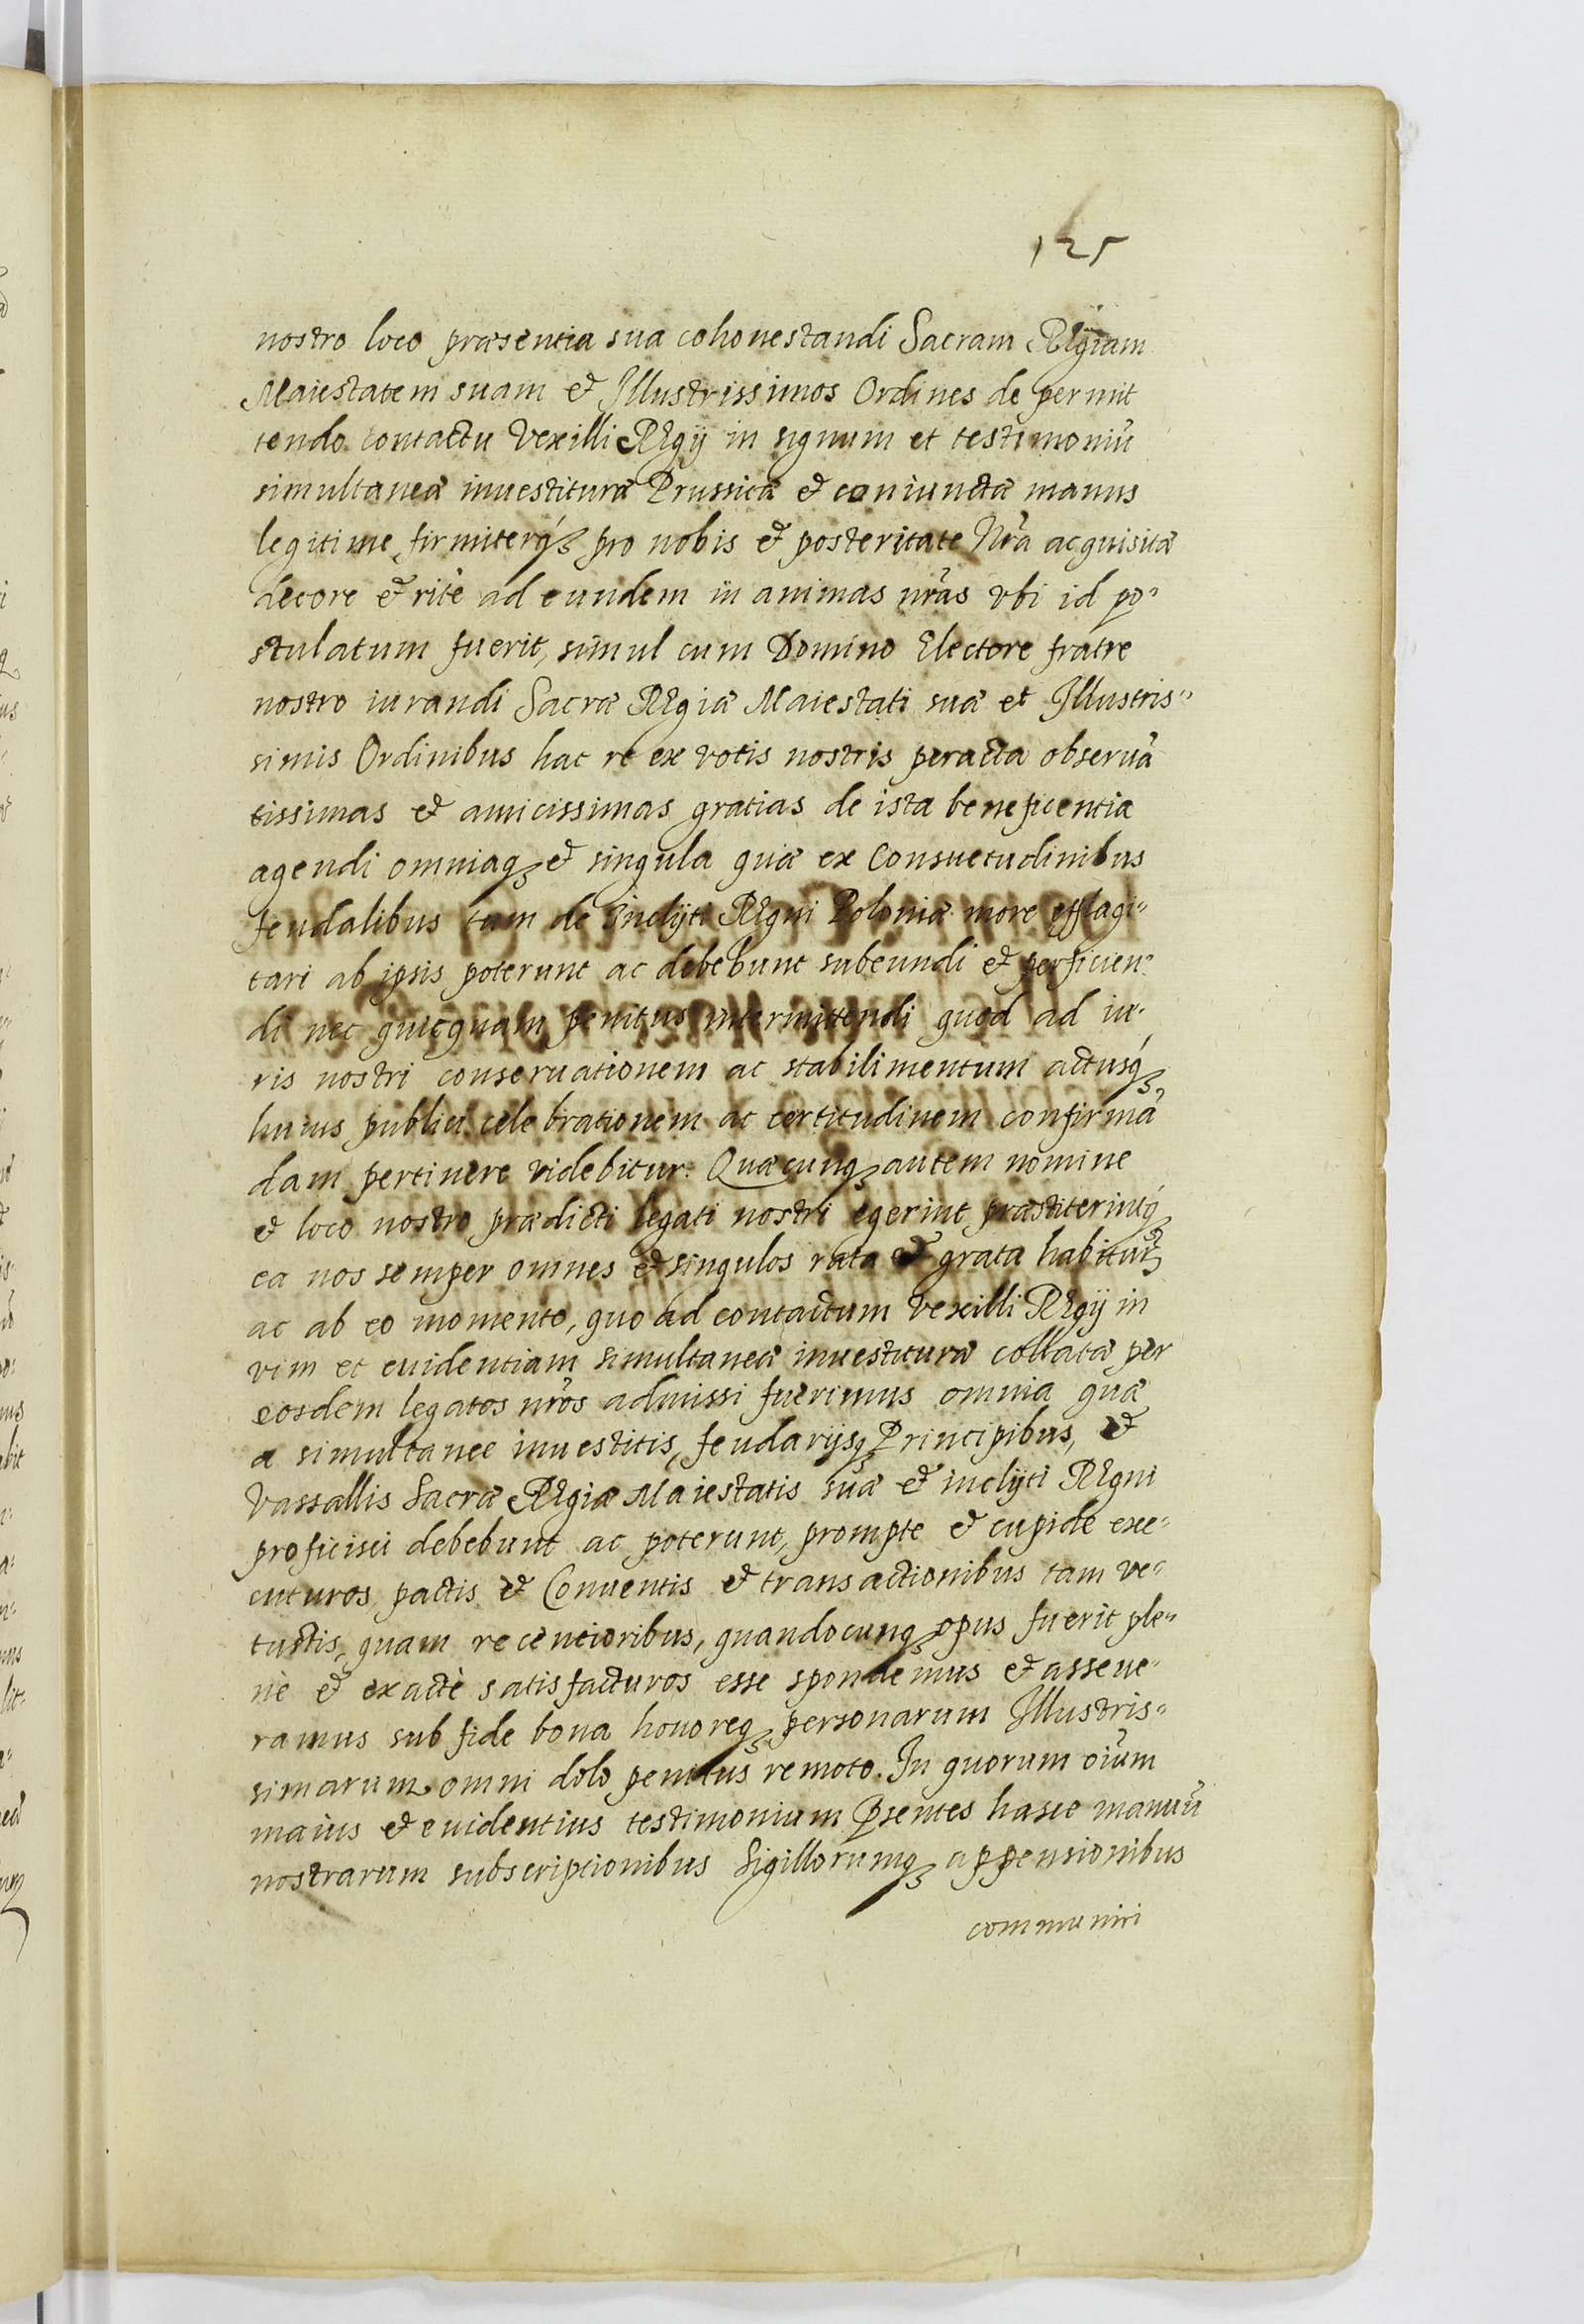 125
nostro loco præsentia sua cohonestandi Sacram Regiam
Maiestatem suam et Illustrissimos Ordines de permit
tendo contactu Vexilli Regij in signum et testimoniũ
simultaneæ inuestituræ Prussicæ et coniunctæ manus
legitime firmiterq́ꝫ pro nobis et posteritate Nr̃a acquisitæ
decore et ritè ad eundem in animas nr̃as vbi id po⸗
stulatum fuerit, simul cum Domino Electore fratre
nostro iurandi Sacræ Regiæ Maiestati suæ et Illustris⸗
simis Ordinibus hac re ex votis nostris peracta obseruã
tissimas et amicissimas gratias de ista beneficentia
agendi omniaqꝫ et singula quæ ex Consuetudinibus
feudalibus tam de Inclyti Regni Poloniæ more efflagi⸗
tari ab ipsis poterunt ac debebunt subeundi et perficien⸗
di nec quicquam penitus intermittendi quod ad iu⸗
ris nostri conseruationem ac stabilimentum actusq́ꝫ
huius publici celebrationem ac certitudinem confirmã
dam pertinere videbitur. Quæcunqꝫ autem nomine
et loco nostro prædicti legati nostri egerint præstiterintq́ꝫ
ea nos semper omnes et singulos rata et grata habituros
ac ab eo momento, quo ad contactum Vexilli Regij in
vim et euidentiam simultaneæ inuestituræ collatæ per
eosdem legatos nr̃os admissi fuerimus omnia quæ
a simultanee inuestitis, feudarijsqꝫ Principibus, et
Vassallis Sacræ Regiæ Maiestatis suæ et inclyti Regni
proficisci debebunt ac poterunt, prompte et cupide exe⸗
cuturos, pactis et Conuentis et transactionibus tam ve⸗
tustis, quam recentioribus, quandocunqꝫ opus fuerit ple⸗
nè et exactè satisfacturos esse spondemus et asseue⸗
ramus sub fide bona honoreqꝫ personarum Illustris⸗
simarum omni dolo penitus remoto. In quorum oĩum
maius et euidentius testimonium p̃sentes hasce manuũ
nostrarum subscriptionibus Sigillorumqꝫ appensionibus
communiri